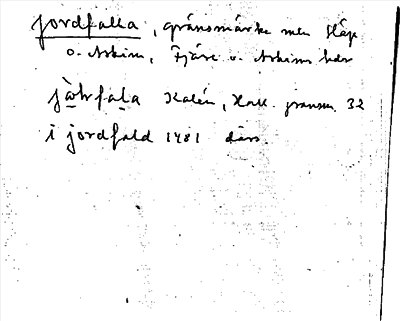 jordfalla, gränsmärke mln Släp
o. Askim, Fjäre o. Askims hdr
jàhrfala Kalén, Hall. gränsm. 32
i jordfald 1481 därs.